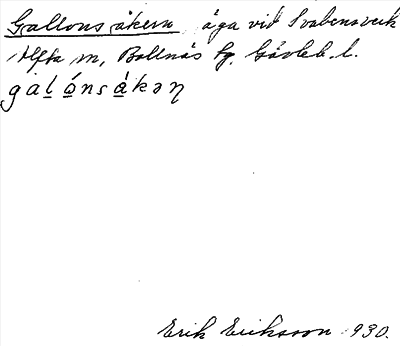 Gallons åkern äga vid Svabensverk
Alfta m, Bollnäs fg, Gävleb. l.
galónsákən
Erik Eriksson 1930.